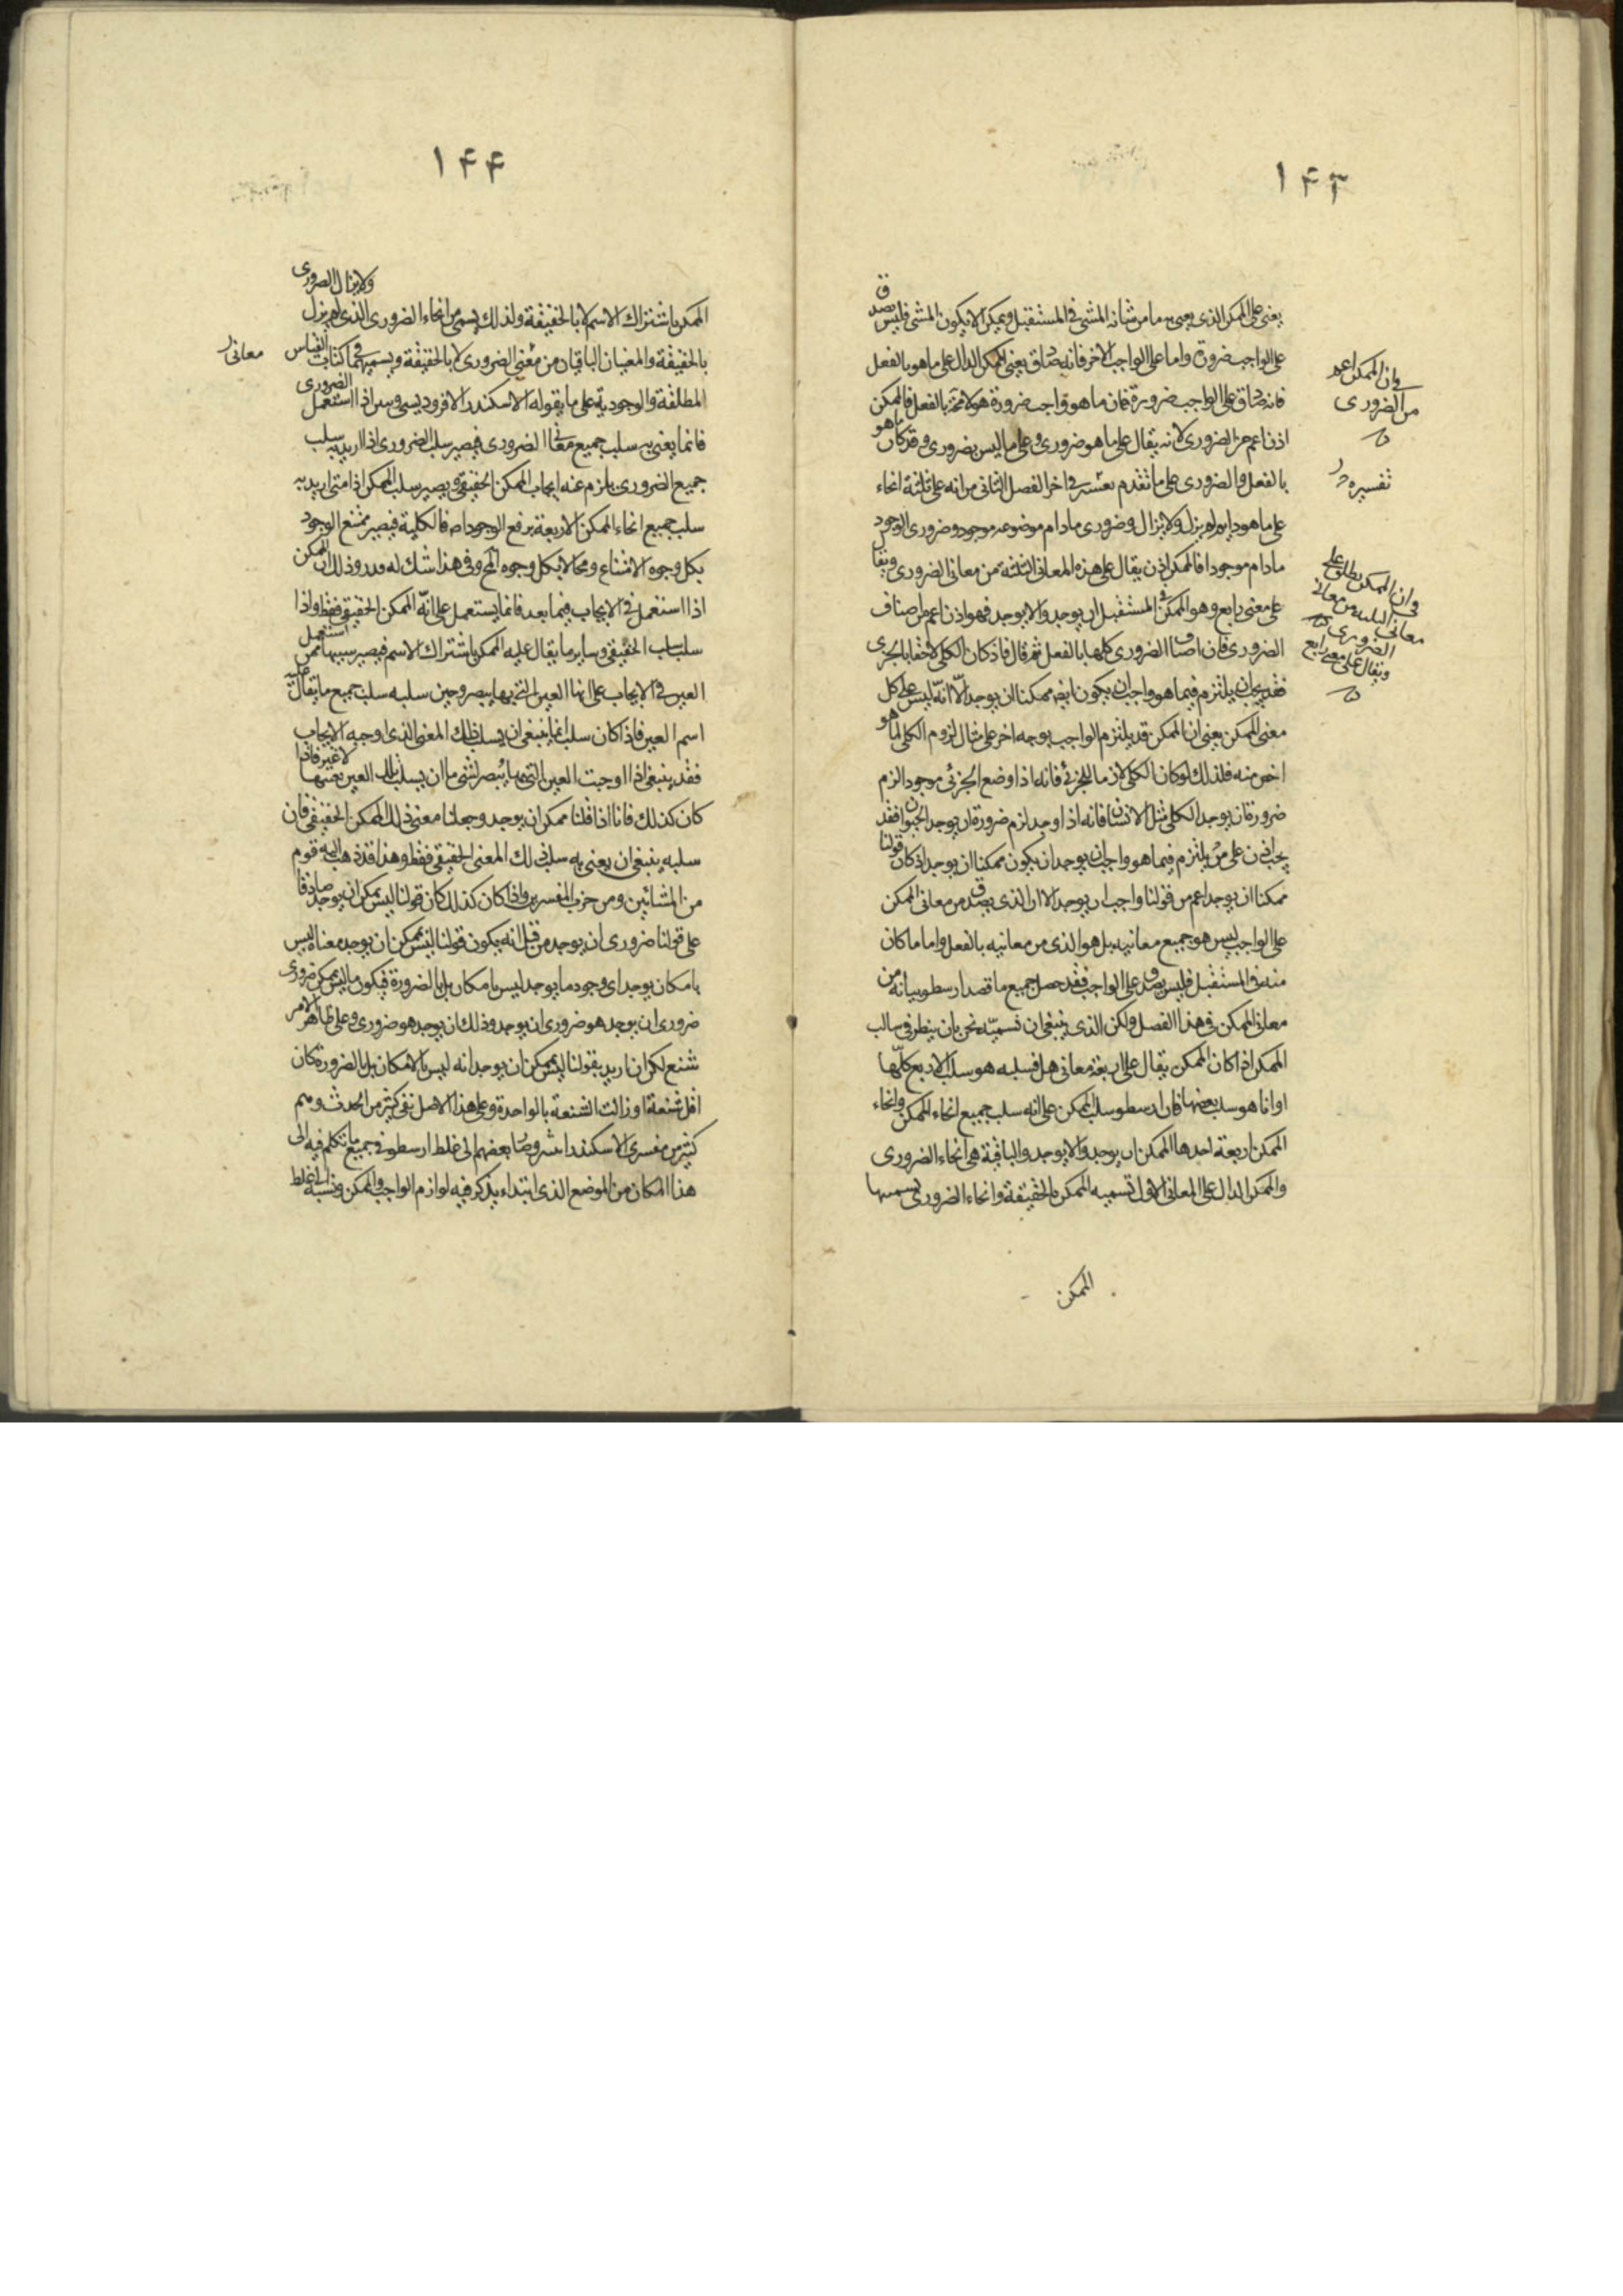 ١٤٣
يعنى على الممكن الذى يعنى به ما من شانه المشى فى المستقبل ويمكن الا يكون المشى فليس يصدق
على الواجب ضرورة واما على الواجب الاخر فانه صادق يعنى الممكن الدال على ما هو بالفعل
فانه صادق على الواجب ضرورة فان ما هو واجب ضرورة هو لا محة بالفعل فالممكن
اذن اعم من الضرورى لانه يقال على ما هو ضرورى وعلى ما ليس بضرورى وقد كان ما هو
بالفعل والضرورى على ما تقدم تفسيره فى اخر الفصل الثانى من انه على ثلثة انحاء
على ما هو دايم لم يزل ولا يزال وضرورى مادام موضوعه موجود وضرورى الوجود
مادام موجودا فالممكن اذن يقال على هذه المعانى الثلثة من معانى الضرورى ويقال
على معنى رابع وهو الممكن فى المستقبل ان يوجد والا يوجد فهو اذن اعم من اصناف
الضرورى فان اصناف الضرورى كلها بالفعل ثم قال فاذ كان الكلى لاحقا بالجزى
فقد يجب ان يلتزم فيما هو واجب ان يكون ايضا ممكنا ان يوجد الا انه ليس على كل
معنى الممكن يعنى ان الممكن قد يلتزم الواجب بوجه اخر على مثال لزوم الكلى لما هو
اخص منه فلذلك لو كان الكلى لازما للجزئى فانه اذا وضع الجزئى موجودا لزم
ضرورة ان يوجد الكلى مثل الانسان فانه اذا وجد لزم ضرورة ان يوجد الحيوان فقد
يجب اذن على من يلتزم فيما هو واجب ان يوجد ان يكون ممكنا ان يوجد اذ كان قولنا
ممكنا ان يوجد اعم من قولنا واجب ان يوجد الا ان الذى يصدق من معانى الممكن
على الواجب ليس هو جميع معانيه بل هو الذى من معانيه بالفعل واما ما كان
منه فى المستقبل فليس يصدق على الواجب فقد حصل جميع ما قصد ارسطو بيانه من
معانى الممكن فى هذا الفصل ولكن الذى ينبغى ان نسميه نحن بان ينظر فى سالب
الممكن اذا كان الممكن يقال على اربعة معانى هل فسلبه هو سلب الاربع كلها
او انما هو سلب بعضها فان ارسطو سلب الممكن على انه سلب جميع انحاء الممكن وانحاء
الممكن اربعة احدها الممكن ان يوجد والا يوجد والباقية هى انحاء الضرورى
والممكن الدال على المعانى الاول تسميه الممكن بالحقيقة وانحاء الضرورى تسميها
الممكن
وان الممكن اعم
من الضرورى
تفسيره
وان الممكن يطلق على
معانى الثلثة من معانى
الضرورى
ويقال على معنى رابع
١٤٤
الممكن باشتراك الاسم لا بالحقيقة ولذلك يسمى من انحاء الضرورى الذى لم يزل ولا يزال الضرورى
بالحقيقة والمعنيان الباقيان من معنى الضرورى لا بالحقيقة ويسميهما فى كتاب القياس
المطلقة والوجودية على ما يقوله الاسكندر الافروديسى اذا استعمل الضرورى
فانما يعنى به سلب جميع معانى الضرورى فيصير سلب الضرورى اذا اريد به سلب
جميع الضرورى يلزم عنه ايجاب الممكن الحقيقى ويصير سلب الممكن اذا متى اريد به
سلب جميع انحاء الممكن الاربعة يرفع الوجود اصا فالكلية فيصير ممتنع الوجود
بكل وجوه الامتناع ومحالا بكل وجوه المح وفى هذا شك له قدر وذلك ان الممكن
اذا استعمل فى الايجاب فيما بعد فانما يستعمل على انه الممكن الحقيقى فقط واذا
سلب سلب الحقيقى وساير ما يقال عليه الممكن باشتراك الاسم فيصير شبيها بمن استعمل
العين فى الايجاب على انها العين التى بها يبصر وحين سلبه سلب جميع ما يقال عليه
اسم العين فاذ كان سلب انما ينبغى ان يسلب ذلك المعنى الذى اوجبه الايجاب
فقد ينبغى اذا اوجبت العين التى بها يبصر لشى ما ان يسلب تلك العين بعينها لا غير فاذا
كان كذلك فانا اذا قلنا ممكن ان يوجد وجعلنا معنى ذلك الممكن الحقيقى فان
سلبه ينبغى ان يعنى به سلب ذلك المعنى الحقيقى فقط وهذا قد ذهب اليه قوم
من المشائين ومن حزب المفسرين واذا كان كذلك كان قولنا ليس يمكن ان يوجد صادقا
على قولنا ضرورى ان يوجد من قبل انه يكون قولنا ليس يمكن ان يوجد معناه ليس
بامكان يوجد اى وجود ما يوجد ليس بامكان بل بالضرورة فيكون ما ليس يمكن ضرورى
ضرورى ان يوجد هو ضرورى ان يوجد وذلك ان يوجد هو ضرورى وعلى ظاهر الامر
شنع لكن ان اريد بقولنا ليس يمكن ان يوجد انه ليس بالامكان بل بالضرورة كان
اقل شنعة او زالت الشنعة بالواحدة وعلى هذا الاصل نفى كثير من الحدث ومم
كثير من مفسرى الاسكندر اشروصا بعضهم الى غلط ارسطو فى جميع ما تكلم فيه الى
هذا المكان من الموضع الذى ابتداء يذكر فيه لوازم الواجب والممكن ونسبه الى الغلط
معانى